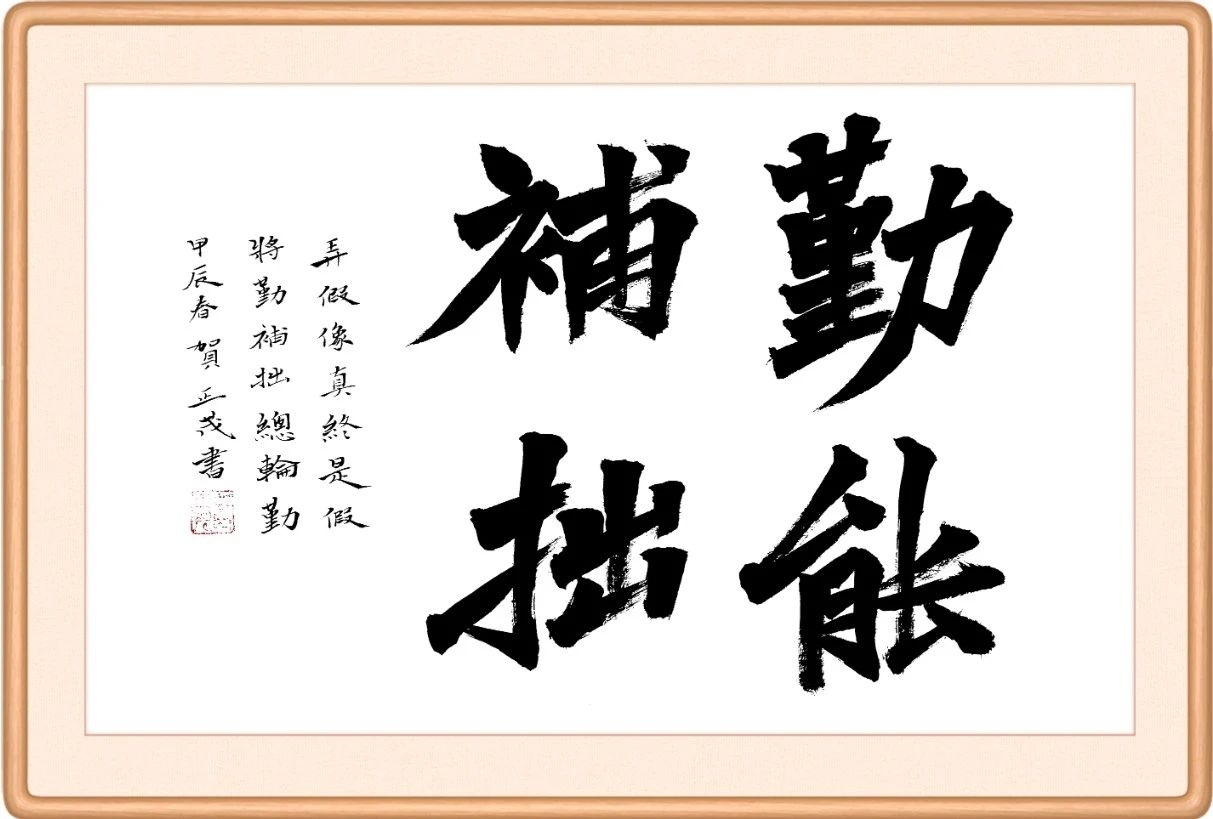 勤能
補拙
弄假像真終是假
將勤補拙總輪勤
甲辰春賀正茂書